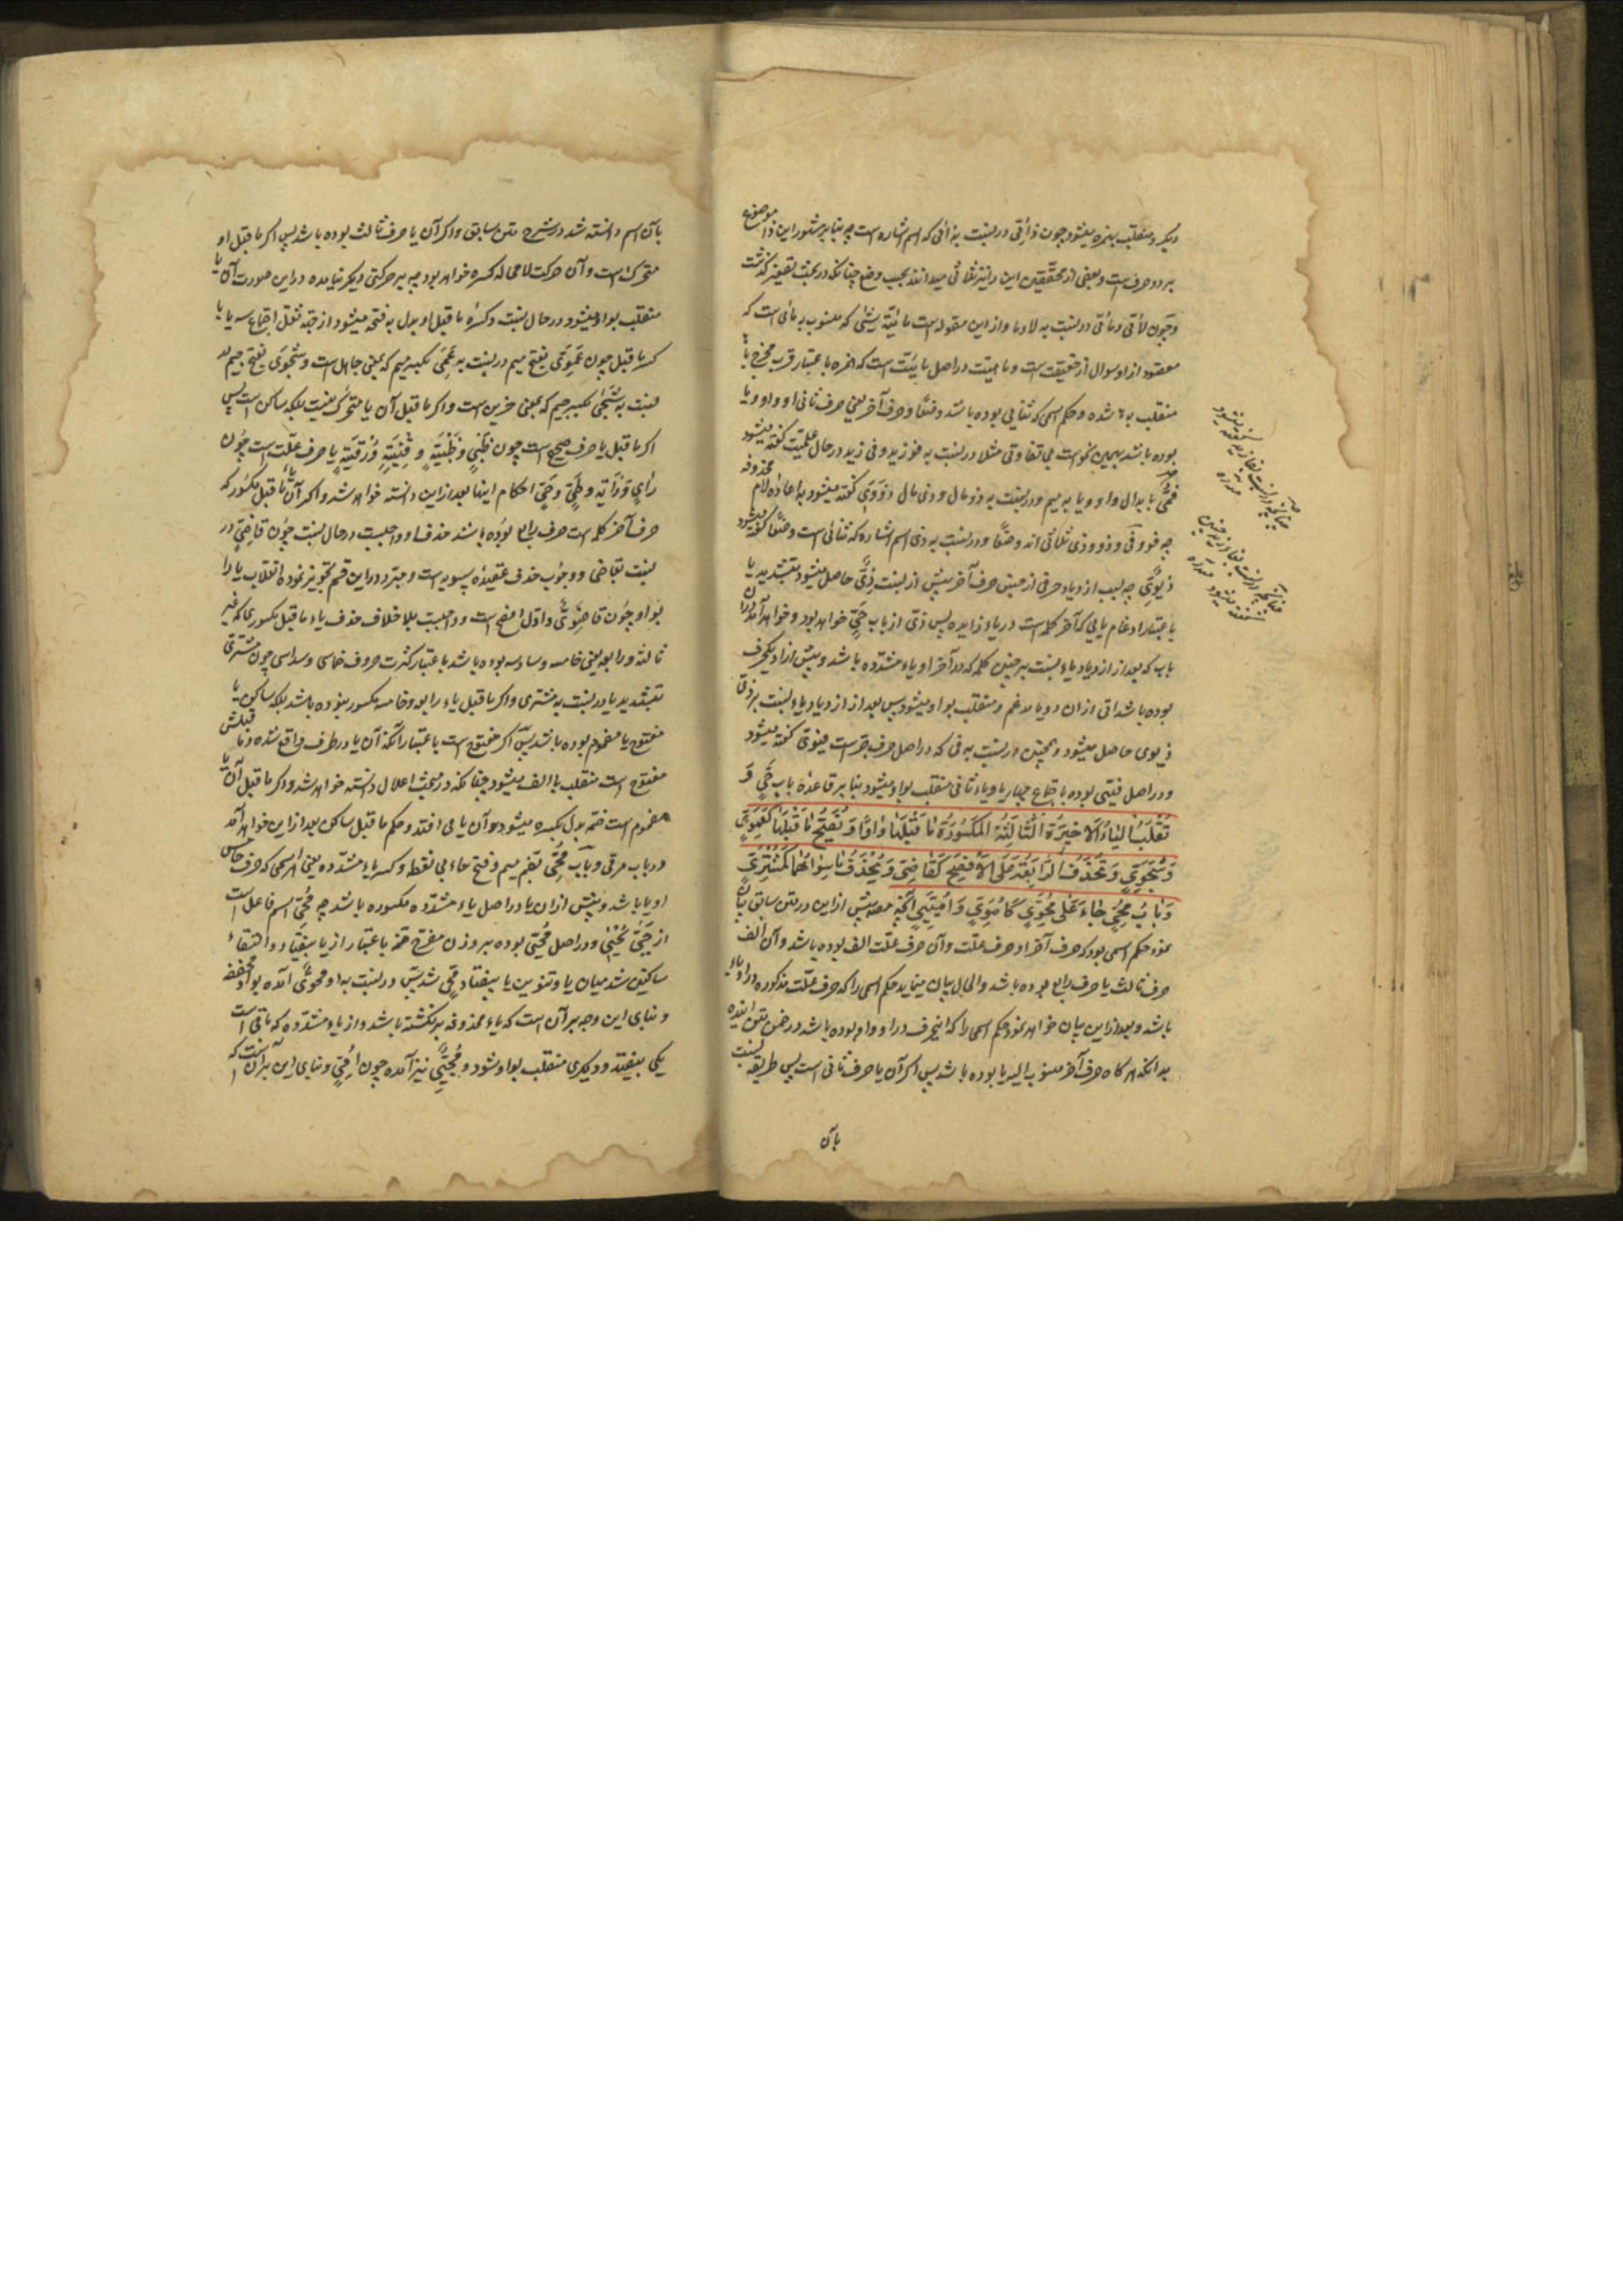 دیکر و منقلب بهمزه میشود چون ذائی در نسبت بذائی که اسم اشاره است چه بنا بر مشهور این ذا موضوع
بر دو حرف است و بعضی از محققین این را نیز ثلاثی میدانند بحسب وضع چنانکه در بحث تصغیر کذشت
و چون لائی و مائی در نسبت به لا و ما و از این مقوله است مائیّة یشئی که منسوب به مائی است که
مقصود از او سوال از حقیقت است و ماهیت در اصل مائیّت است که همزه باعتبار قرب مخرج با
منقلب به ها شده و حکم اسمی که ثنایی بوده باشد وضعًا و حرف آخر یعنی حرف ثانی او واو و یا
بوده باشد بهمین نحو است بی تفاوتی مثلا در نسبت به فو زید و فی زید در حال علمیّت کفته میشود
فمیّ بابدال واو و یا به میم و در نسبت به ذو مال و ذی مال ذوَویّ کفته میشود باعاده لام محذوفه
چه فو و فی و ذو و ذی ثلاثی اند وضعًا و در نسبت به ذی اسم اشاره که ثنائی است وضعًا کفته میشود
ذیَویّ چه بسبب ازدیاد حرفی از جنس حرف آخرش پیش از نسبت ذیّ حاصل میشود بتشدید یا
باعتبار ادغام یایی که آخر کلمه است در یاء زایده پس ذیّ از باب حیّ خواهد بود و خواهد آمد در ان
باب که بعد از ازدیاد یاء نسبت بر چنین کلمه که در آخر او یاء مشدّده باشد و پیش از او یکحرف
بوده باشد اول از ان دو یا مدغم و منقلب بواو میشود پس بعد از ازدیاد یاء نسبت بر ذیّ
ذیوی حاصل میشود و همچنین در نسبت به فی که در اصل حرف جرست فیَویّ کفته میشود
و در اصل فیّیی بوده باجتماع چهار یا و یاء ثانی منقلب بواو میشود بنا بر قاعده باب حیّ وَ
تُقْلَبُ الْیاءُ الاَخیرَةُ الثّالِثَةُ الْمَکسُورَةُ ما قَبْلَها واوًا وَ تُفْتَحُ ما قَبْلَها کَعَمَوِیّ
وَ شَجَوِیّ وَ تُحْذَفُ الرّابِعَةُ عَلَی الاَفْصَحِ کَقاضِیّ وَ یُحْذَفُ ما سِواهُما کَمُشْتَرِیّ
وَ بابُ مُحَیٍّ جاءَ عَلی مُحَوِیّ کَاُمَوِیّ وَ اُمَیِّیّ آنچه مصه پیش از این در متن سابق بیان
نمود حکم اسمی بود که حرف آخر او حرف علّت و آن حرف علّت الف بوده باشد و آن الف
حرف ثالث یا حرف رابع بوده باشد و الحال بیان مینماید حکم اسمی را که حرف علّت مذکوره در او یاء
باشد و بعد از این بیان خواهد نمود حکم اسمی را که اینحرف در او واو بوده باشد در ضمن متن اینده
بدانکه هر کاه حرف آخر منسوب الیه یا بوده باشد پس اکر آن یا حرف ثانی است پس طریقه نسبت
بآن
بآن اسم دانسته شد در شرح متن سابق و اکر آن یا حرف ثالث بوده باشد پس اکر ما قبل او
متحرک است و آن حرکت لامحاله کسره خواهد بود چه بر حرکتی دیکر نیامده در این صورت آن یا
منقلب بواو میشود در حال نسبت و کسره ما قبل او بدل به فتحه میشود از جهة ثقل اجتماع سه یا با
کسره ما قبل چون عَمَویّ بفتح میم در نسبت به عَمیّ بکسر میم که بمعنی جاهل است و شجویّ بفتح جیم در
نسبت به شجیّ بکسر جیم که بمعنی حزین است و اکر ما قبل آن یا متحرک نیست بلکه ساکن است پس
اکر ما قبل یا حرف صحیح است چون ظبیٍ و ظَبْیَةٍ و قِنْیَةٍ و رُقْیَةٍ یا حرف علّت است چون
رایٍ و رایةٍ و طیّ و حیّ احکام اینها بعد از این دانسته خواهد شد و اکر آن یاء ما قبل مکسور که
حرف آخر کلمه است حرف رابع بوده باشد حذف او واجبست در حال نسبت چون قاضیّ در
نسبت بقاضی و وجوب حذف عقیده سیبویه است و مبرّد در این قسم تجویز نموده انقلاب یا را
بواو چون قاضَویّ و اوّل افصح است و واجبست بلا خلاف حذف یاء ما قبل مکسوری که غیر
ثالثه و رابعه یعنی خامسه و سادسه بوده باشد باعتبار کثرت حروف خماسی و سداسی چون مشتریّ
بتشدید یا در نسبت به مشتری و اکر ما قبل یاء رابعه و خامسه مکسور نبوده باشد بلکه ساکن یا
مفتوح یا مضموم بوده باشد پس اکر مفتوح است باعتبار آنکه آن یا در طرف واقع شده و ما قبلش
مفتوح است منقلب بالف میشود چنانکه در مبحث اعلال دانسته خواهد شد و اکر ما قبل آن یا
مضموم است ضمّه بدل بکسره میشود و آن یا می افتد و حکم ما قبل ساکن بعد از این خواهد آمد
در باب مرقی و باب مُحَیّ بضم میم و فتح حاء بی نقطه و کسر یاء مشدّده یعنی هر اسمی که حرف خامس
او یا باشد و پیش از ان یا در اصل یاء مشدّده مکسوره باشد چه مُحَیّ اسم فاعل است
از حَیّی یُحَیّی و در اصل مُحَیّی بوده بر وزن مفرّح ضمّه باعتبار از یا بیفتاد و التقاء
ساکنین شد میان یا و تنوین یا بیفتاد مُحَیّ شد پس در نسبت به او محویّ آمده بواو مخفّفه
و بنای این وجه بر آن است که یاء محذوفه برنکشته باشد و از یاء مشدّده که باقی است
یکی بیفتد و دیکری منقلب بواو شود و مُحَیِّیّ نیز آمده چون اُمَیِّیّ و بنای این بر آنست که